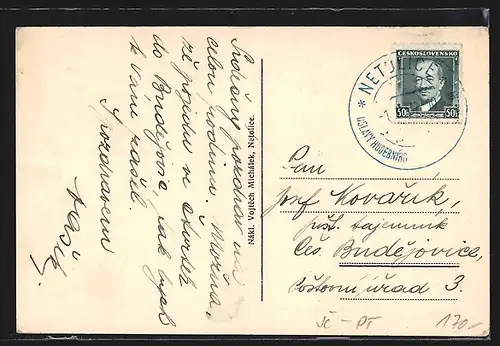 Srdečný pozdrav na
celou rodinu. Možná,
že pojedu ve čtvrtek
do Budějovic, tak bych
k Vám zašel.
S pozdravem
Nákl. Vojtěch Michálek, Netolice.
ČESKOSLOVENSKO
50h 50h
* NETOLICE
OSLAVY HUDEBNÍHO
Pan
Josef Kovařík,
pošt. tajemník
Čes. Budějovice,
Poštovní úřad 3.
JČ - PT
170,-